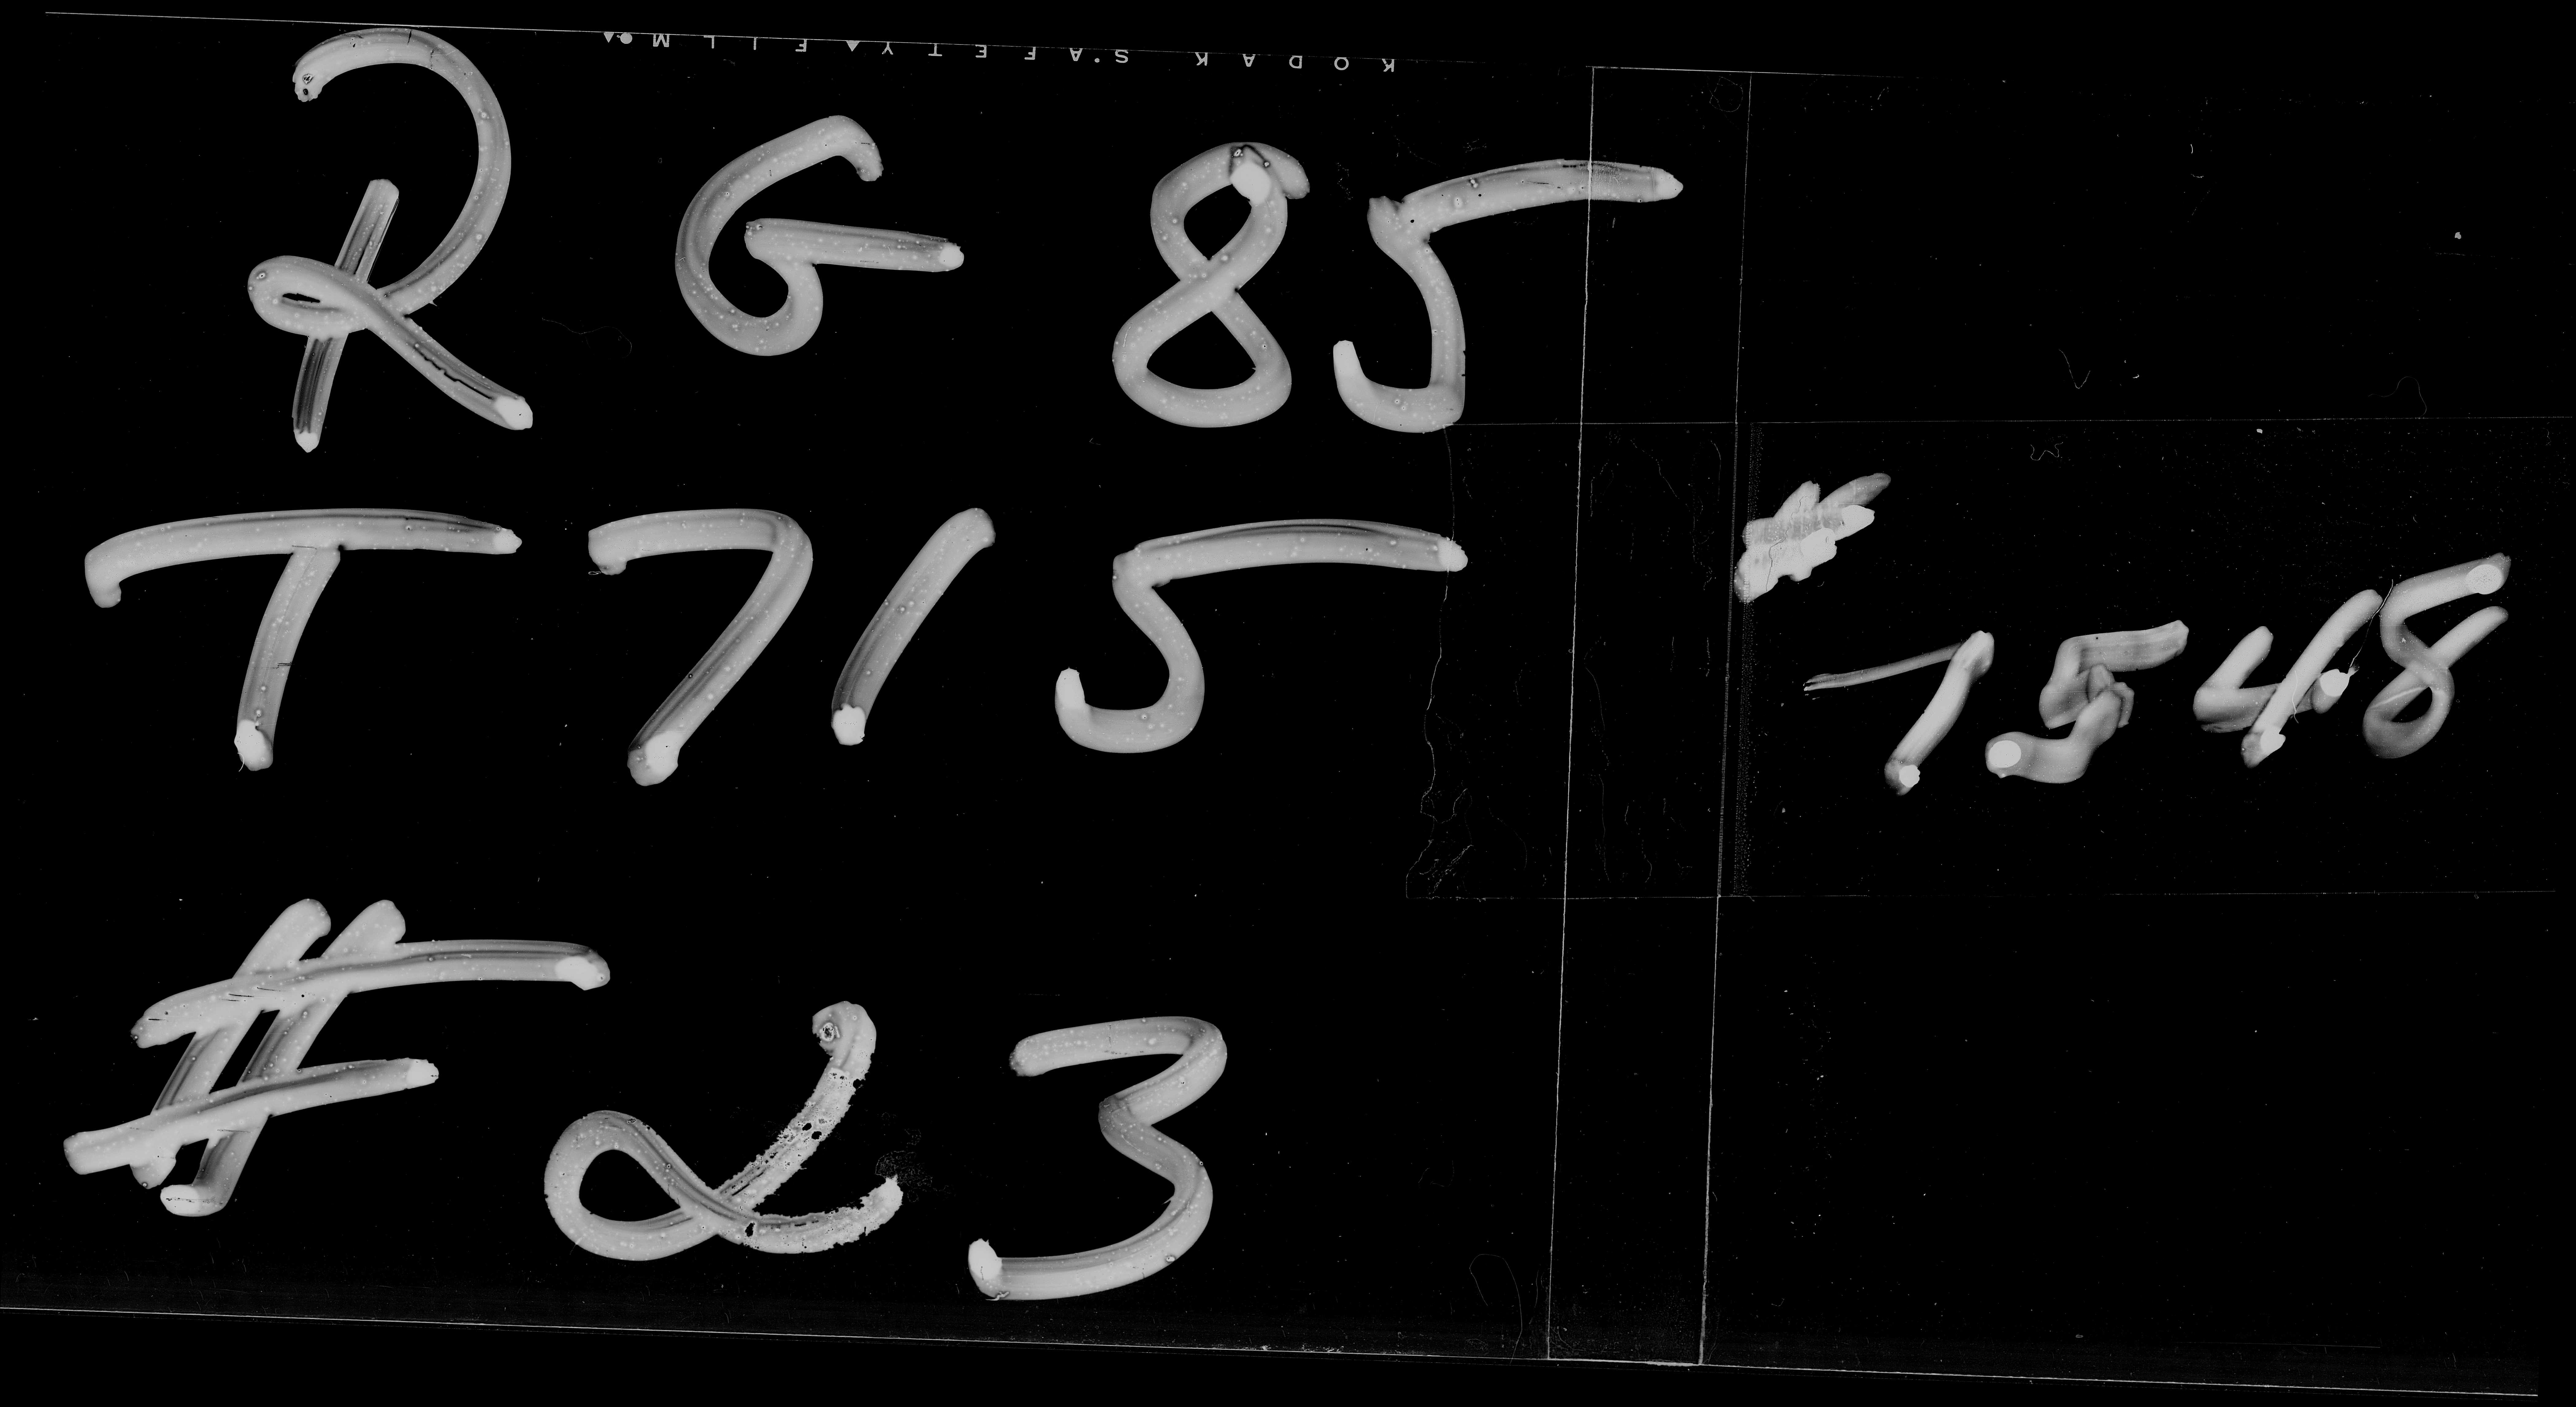 KODAK SAFETY FILM
RG 85
T 715
7548
# 23